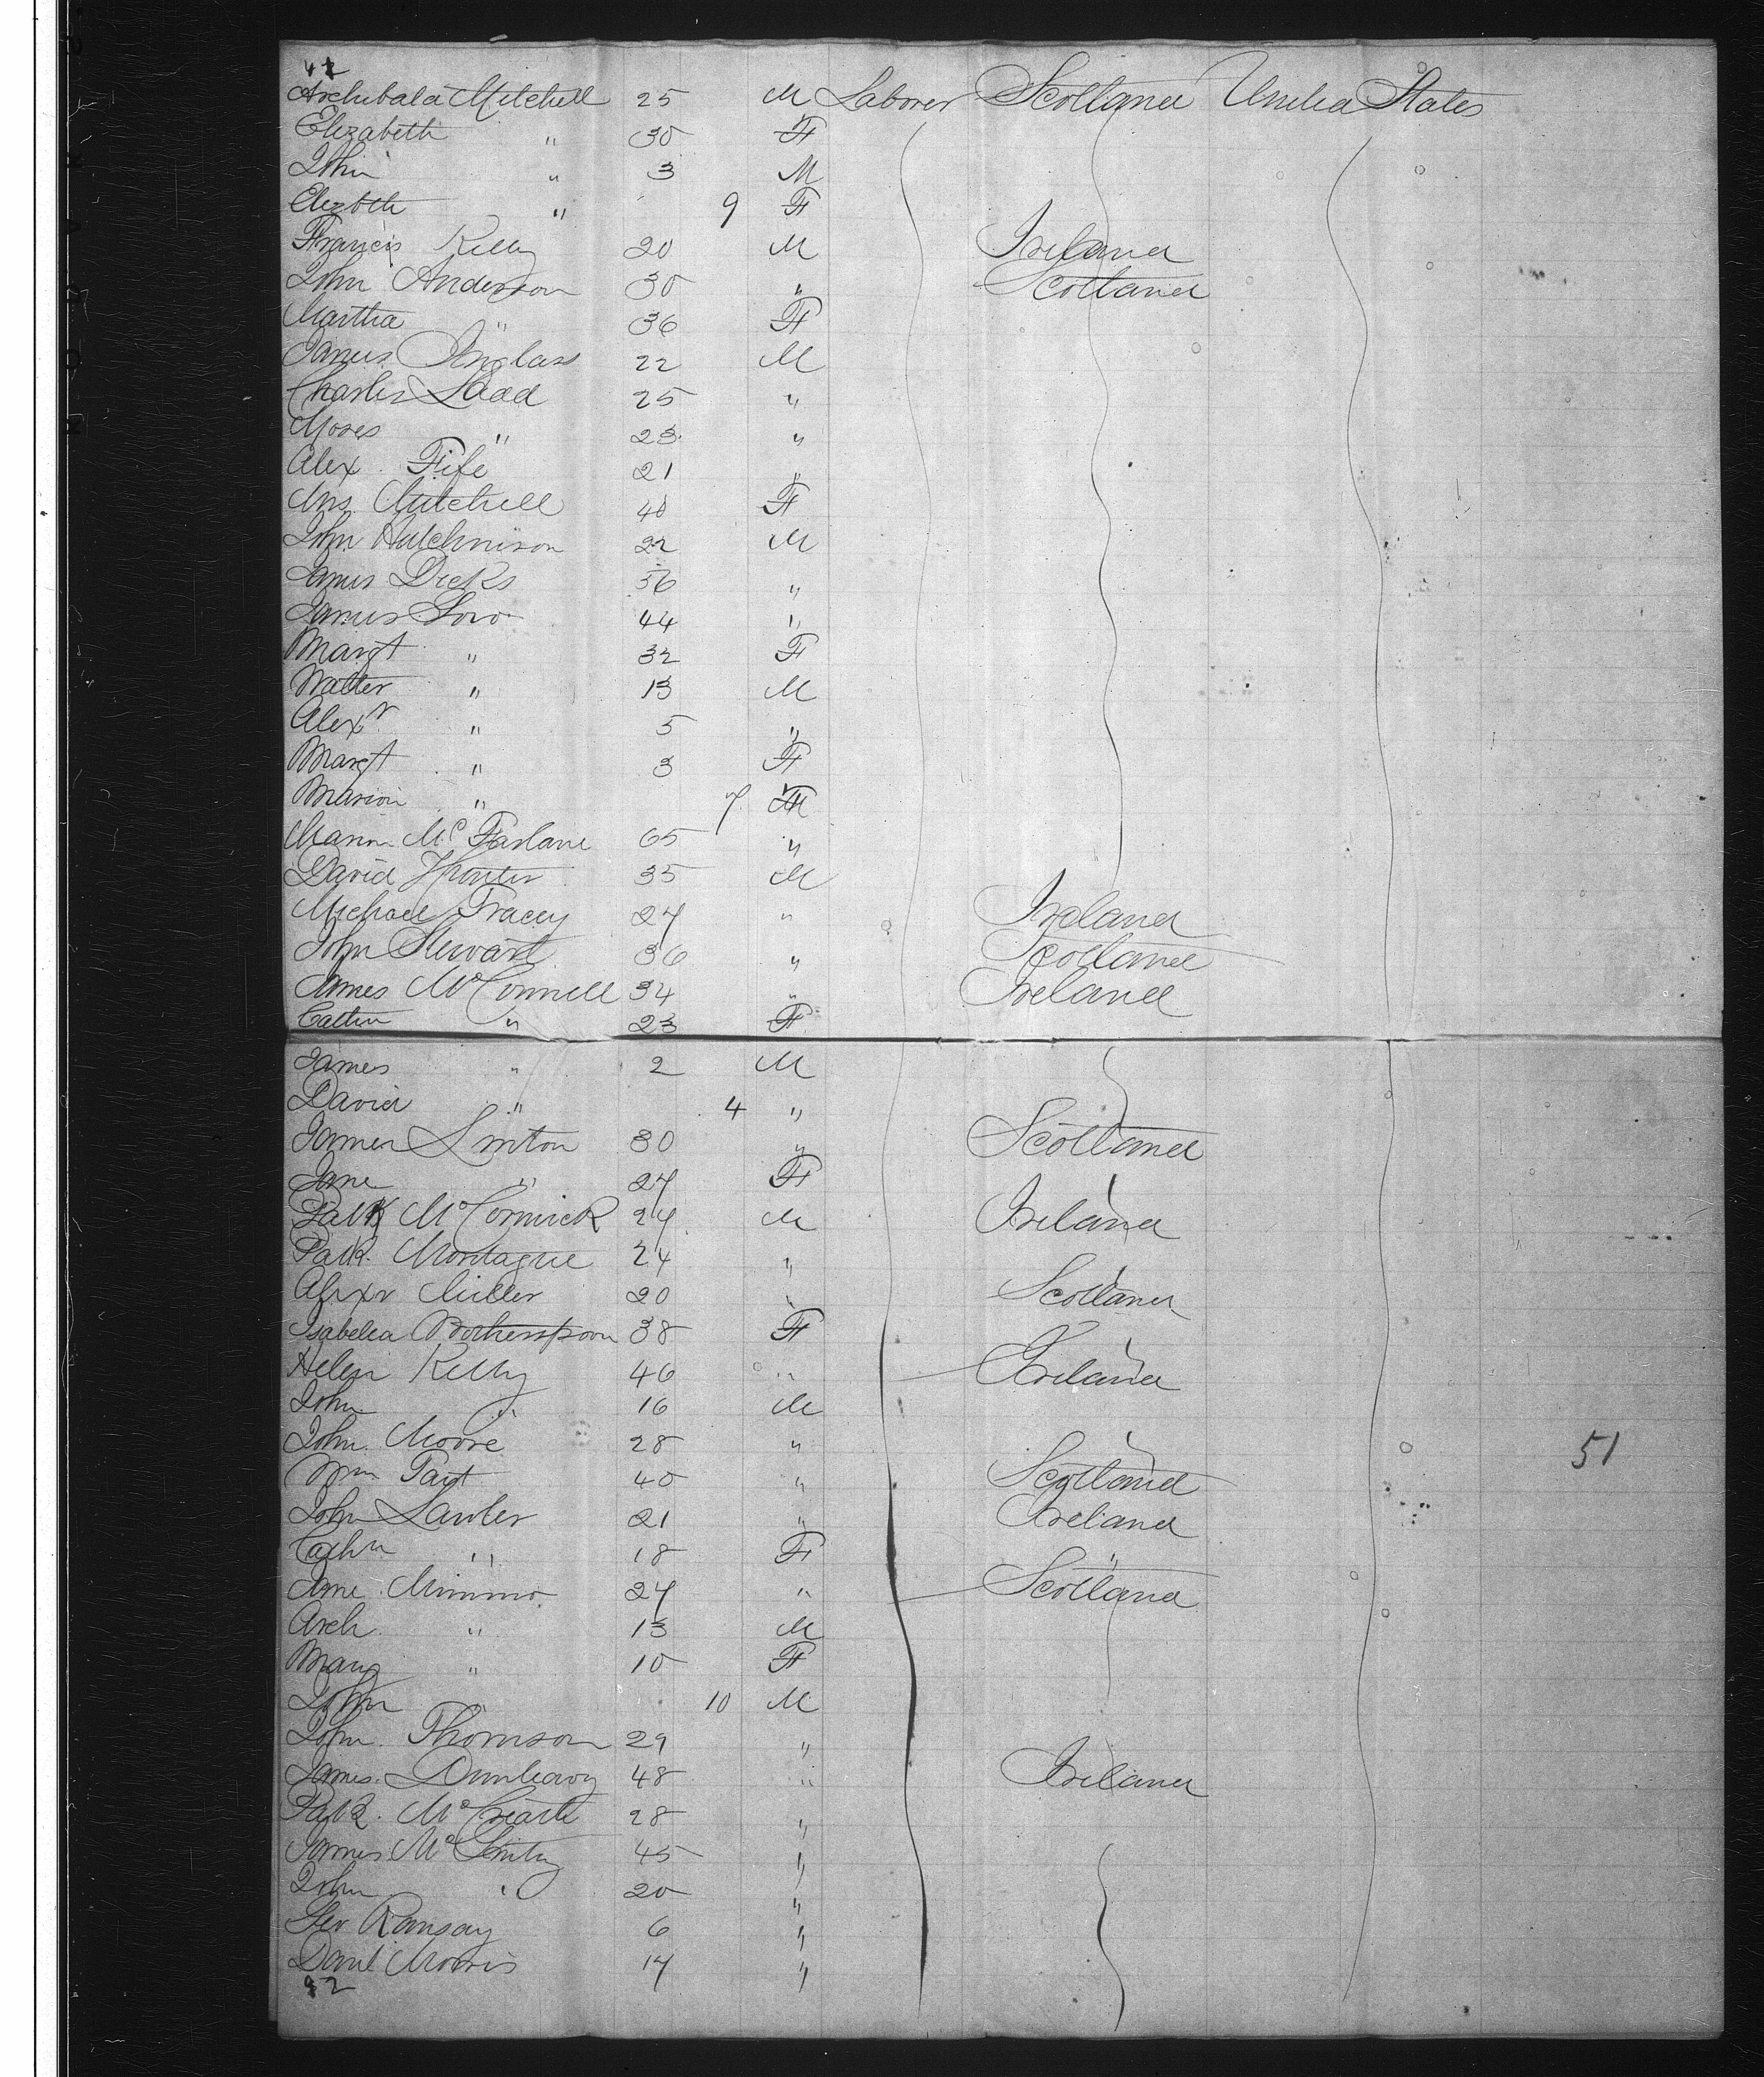 42
Archibald Mitchell 25 M Laborer Scotland United States
Elizabeth " 30 F
John " 3 M
Elizbth " 9 F
Francis Kelly 20 M Ireland
John Anderson 30 " Scotland
Martha " 36 F
James Inglass 22 M
Charles Ladd 25 "
Moses " 23 "
Alex. Fife 21 "
Mrs. Mitchell 40 F
John Hutchinson 22 M
James Dicks 36 "
James Low 44 "
Margt " 32 F
Walter " 13 M
Alexr " 5 "
Margt " 3 F
Marion " 7 F
Marion McFarlane 65 "
David Hunter 35 M
Michael Tracey 27 " Ireland
John Stewart 36 " Scotland
James McConnell 34 " Ireland
Cathn " 23 F
James " 2 M
David " 4 "
James Linton 30 " Scotland
Jane " 27 F "
Patk McCormick 27 M Ireland
Patk. Montague 24 "
Alexr Miller 20 " Scotland
Isabella Wotherspoon 38 F
Helen Kelly 46 " Ireland
John " 16 M
John Moore 28 "
51
Wm Tait 40 " Scotland
John Lawler 21 " Ireland
Cathn " 18 F "
Ann Mimmo 27 " Scotland
Arch. " 13 M
Mary " 10 F
John 10 M
John Thomson 29 "
James Dunleavy 48 " Ireland
Patk. 28 "
James McGinty 45 "
John " 20 "
Ramsay 6 "
Danl Morris 17 "
92